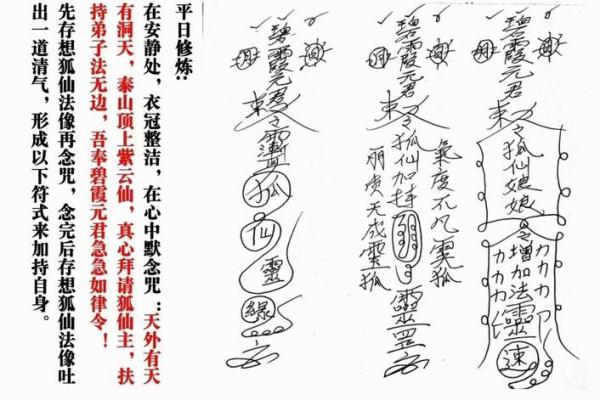 平日修炼:
在安静处，衣冠整洁，在心中默念咒：天外有天
有洞天，泰山顶上紫云仙，真心拜请狐仙主，扶
持弟子法无边，吾奉碧霞元君急急如律令！
先存想狐仙法像再念咒，念完后存想狐仙法像吐
出一道清气，形成以下符式来加持自身。
碧霞元君
狐仙靈緣
碧霞元君
狐仙加持
氣度不凡靈狐
丽质天成靈狐
碧霞元君
狐仙娘娘
增加法靈
力力力
力力力
速